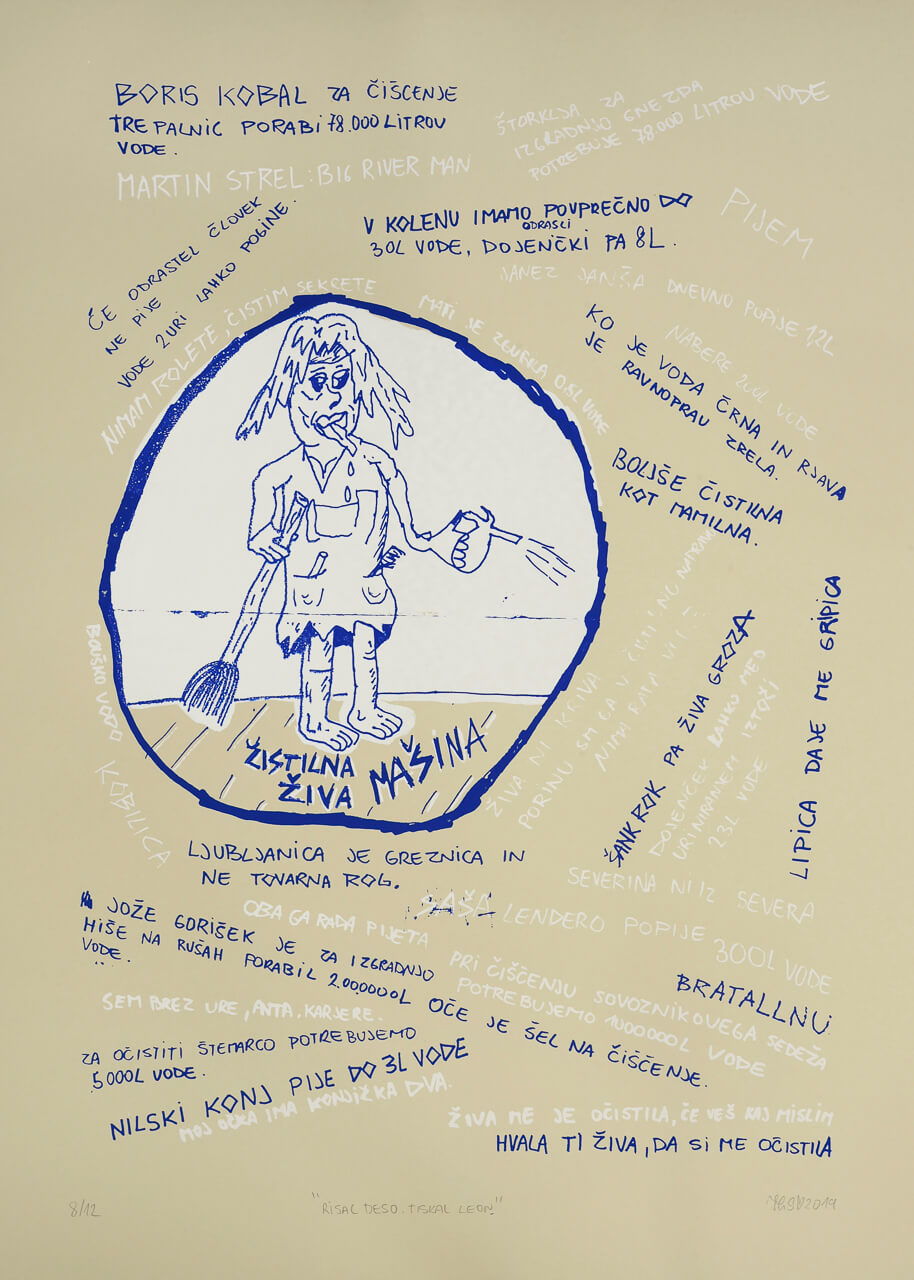 BORIS KOBAL ZA ČIŠČENJE
TREPALNIC PORABI 78.000 LITROU
VODE.
ŠTORKLJA ZA
IZGRADNJO GNEZDA
POTREBUJE 78000 LITROU VODE
MARTIN STREL: BIG RIVER MAN
V KOLENU IMAMO POVPREČNO DO
ODRASLI
30L VODE, DOJENČKI PA 8L.
PIJEM
ČE ODRASTEL ČLOVEK
NE PIJE
VODE 2URI LAHKO POGINE.
JANEZ JANŠA DNEVNO POPIJE 12L
NIMAM ROLETE ČISTIM SEKRETE
MATI JE ZGUBILA 0.5L VODE
NABERE 200L VODE
KO JE VODA ČRNA IN RJAVA
JE RAVNOPRAU ZRELA.
BOLJŠE ČISTILNA
KOT MAMILNA.
BOUŠKO VODO
KOBILICA
ŽIVA NI KAVA
PORINU SM GA V
NIMA
ŠANK ROK PA ŽIVA GROZA
DOJENČEK LAHKO MED
URINIRANEM IZTOČI
23L VODE
LIPICA DAJE ME GRIPICA
ŽISTILNA
ŽIVA MAŠINA
LJUBLJANICA JE GREZNICA IN
NE TOVARNA ROG.
SEVERINA NI IZ SEVERA
SAŠA LENDERO POPIJE 300L VODE
OBA GA RADA PIJETA
JOŽE GORIŠEK JE ZA IZGRADNJO
HIŠE NA RUŠAH PORABIL 2000000L
VODE.
PRI ČIŠČENJU SOVOZNIKOVEGA SEDEŽA
POTREBUJEMO 1000000L VODE
BRATALLNU
OČE JE ŠEL NA ČIŠČENJE.
SEM BREZ URE, ANTA, KARJERE.
ZA OČISTITI ŠTEMARCO POTREBUJEMO
5000L VODE.
NILSKI KONJ PIJE DO 3L VODE
MOJ OČKA IMA KONJIČKA DVA.
ŽIVA ME JE OČISTILA, ČE VEŠ KAJ MISLIM
HVALA TI ŽIVA, DA SI ME OČISTILA
8/12
"RISAL DESO. TISKAL LEON"
2019